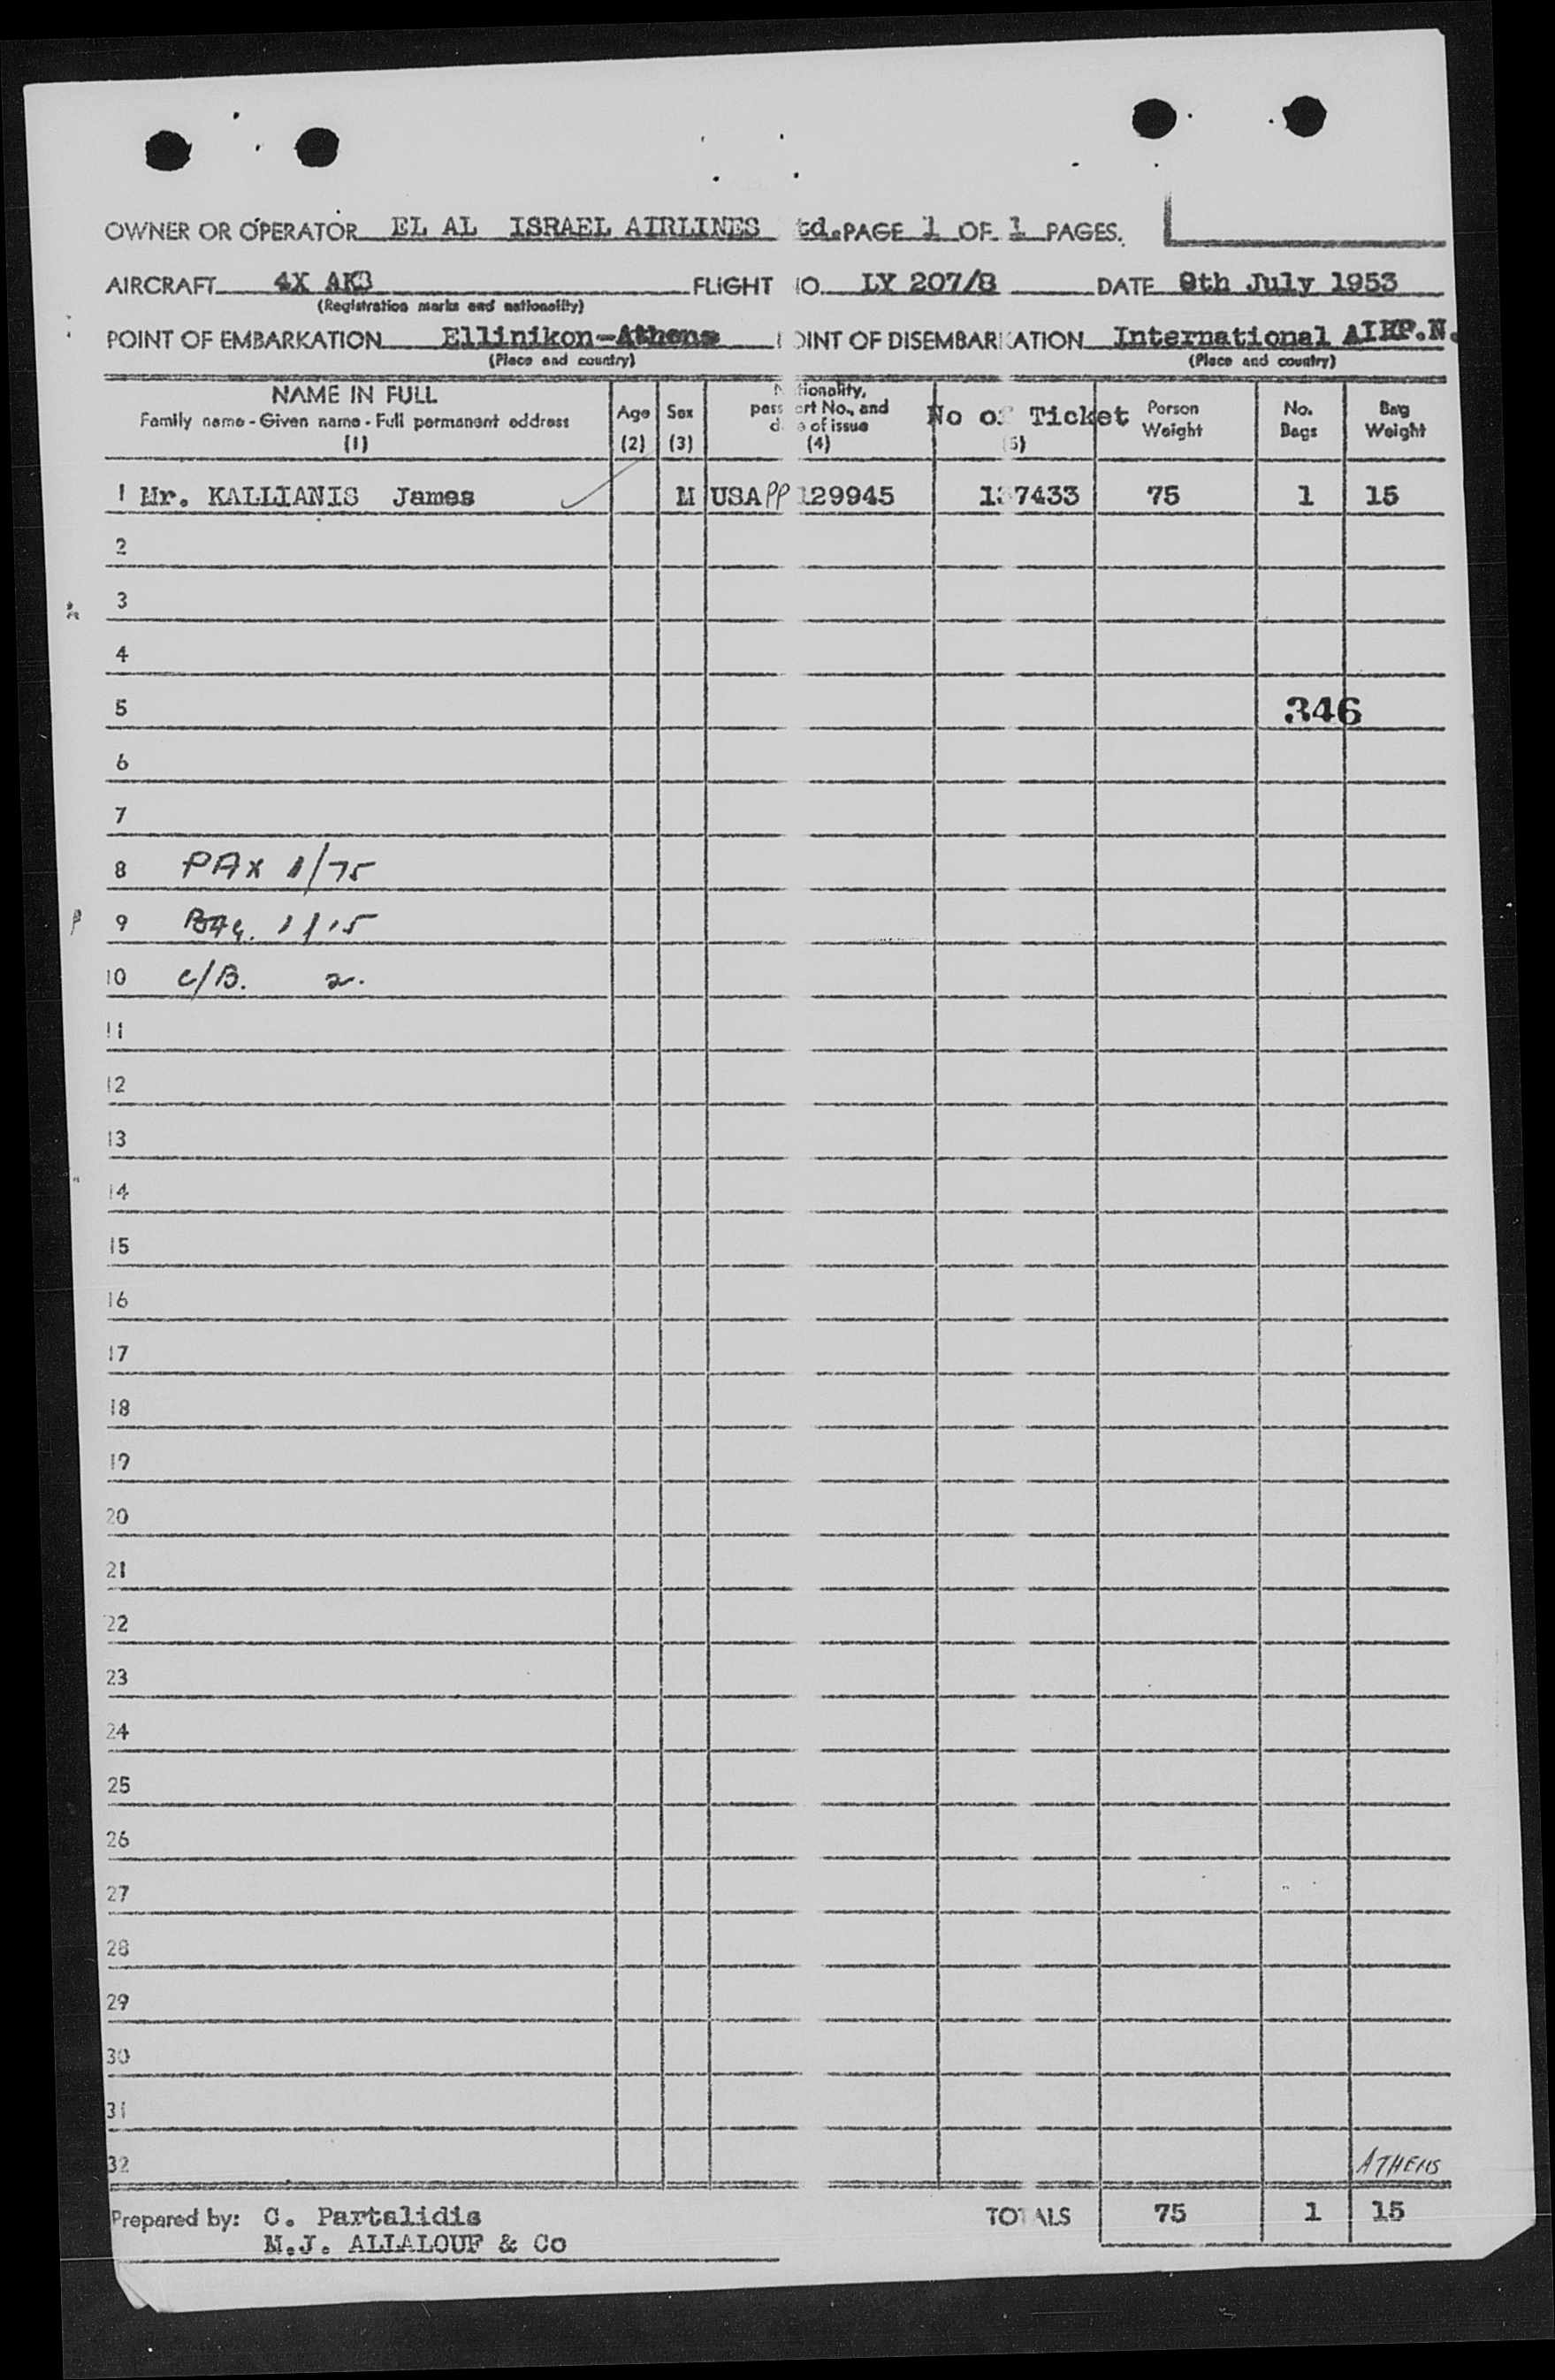 OWNER OR OPERATOR EL AL ISRAEL AIRLINES td. PAGE 1 OF 1 PAGES.
AIRCRAFT 4X AKB FLIGHT NO. LY 207/8 DATE 9th July 1953
(Registration marks and nationality)
POINT OF EMBARKATION Ellinikon-Athens POINT OF DISEMBARKATION International AIRP.N.
(Place and country) (Place and country)
NAME IN FULL
Family name - Given name - Full permanent address
(1)
Age
(2)
Sex
(3)
Nationality,
passport No., and
date of issue
(4)
No of Ticket
(5)
Person
Weight
No.
Bags
Bag
Weight
1 Mr. KALLIANIS James M USA PP 129945 7433 75 1 15
2
3
4
5 346
6
7
8 PAX 1/75
9 BAG. 1/15
10 C/B. 2.
11
12
13
14
15
16
17
18
19
20
21
22
23
24
25
26
27
28
29
30
31
32 ATHENS
Prepared by: C. Partalidis TOTALS 75 1 15
M.J. ALLALOUF & Co